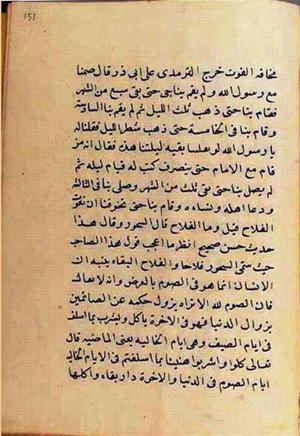 ١٥١
مخافة الفوت خرج الترمذي على ابي ذر قال صمنا
مع رسول الله ولم يقم بنا حتى بقى سبع من الشهر
فقام بنا حتى ذهب ثلث الليل ثم لم يقم بنا السادسة
وقام بنا فى الخامسة حتى ذهب شطر الليل فقلنا له
يا رسول الله لو نفلتنا بقية ليلتنا هذه فقال انه من
قام مع الامام حتى ينصرف كتب له قيام ليلة ثم
لم يصل بنا حتى بقى ثلث من الشهر وصلى بنا فى الثالثة
ودعا اهله ونساءه وقام بنا حتى تخوفنا ان نفوت
الفلاح قيل وما الفلاح قال السحور وقال هذا
حديث حسن صحيح انظر ما اعجب قول هذا الصاحب
حيث سمى السحور فلاحا والفلاح البقاء ينبه ان
الانسان انما هو فى الصوم بالعرض وانه لا
فان الصوم لله الا تراه يزول حكمه عن الصائمين
بزوال الدنيا فهو فى الاخرة ياكل ويشرب بما اسلف
فى ايام الصيف وهى ايام الخالية يعنى الماضية قال
تعالى كلوا واشربوا هنيئا بما اسلفتم فى الايام الخالية
ايام الصوم فى الدنيا والاخرة دار بقاء واكلها